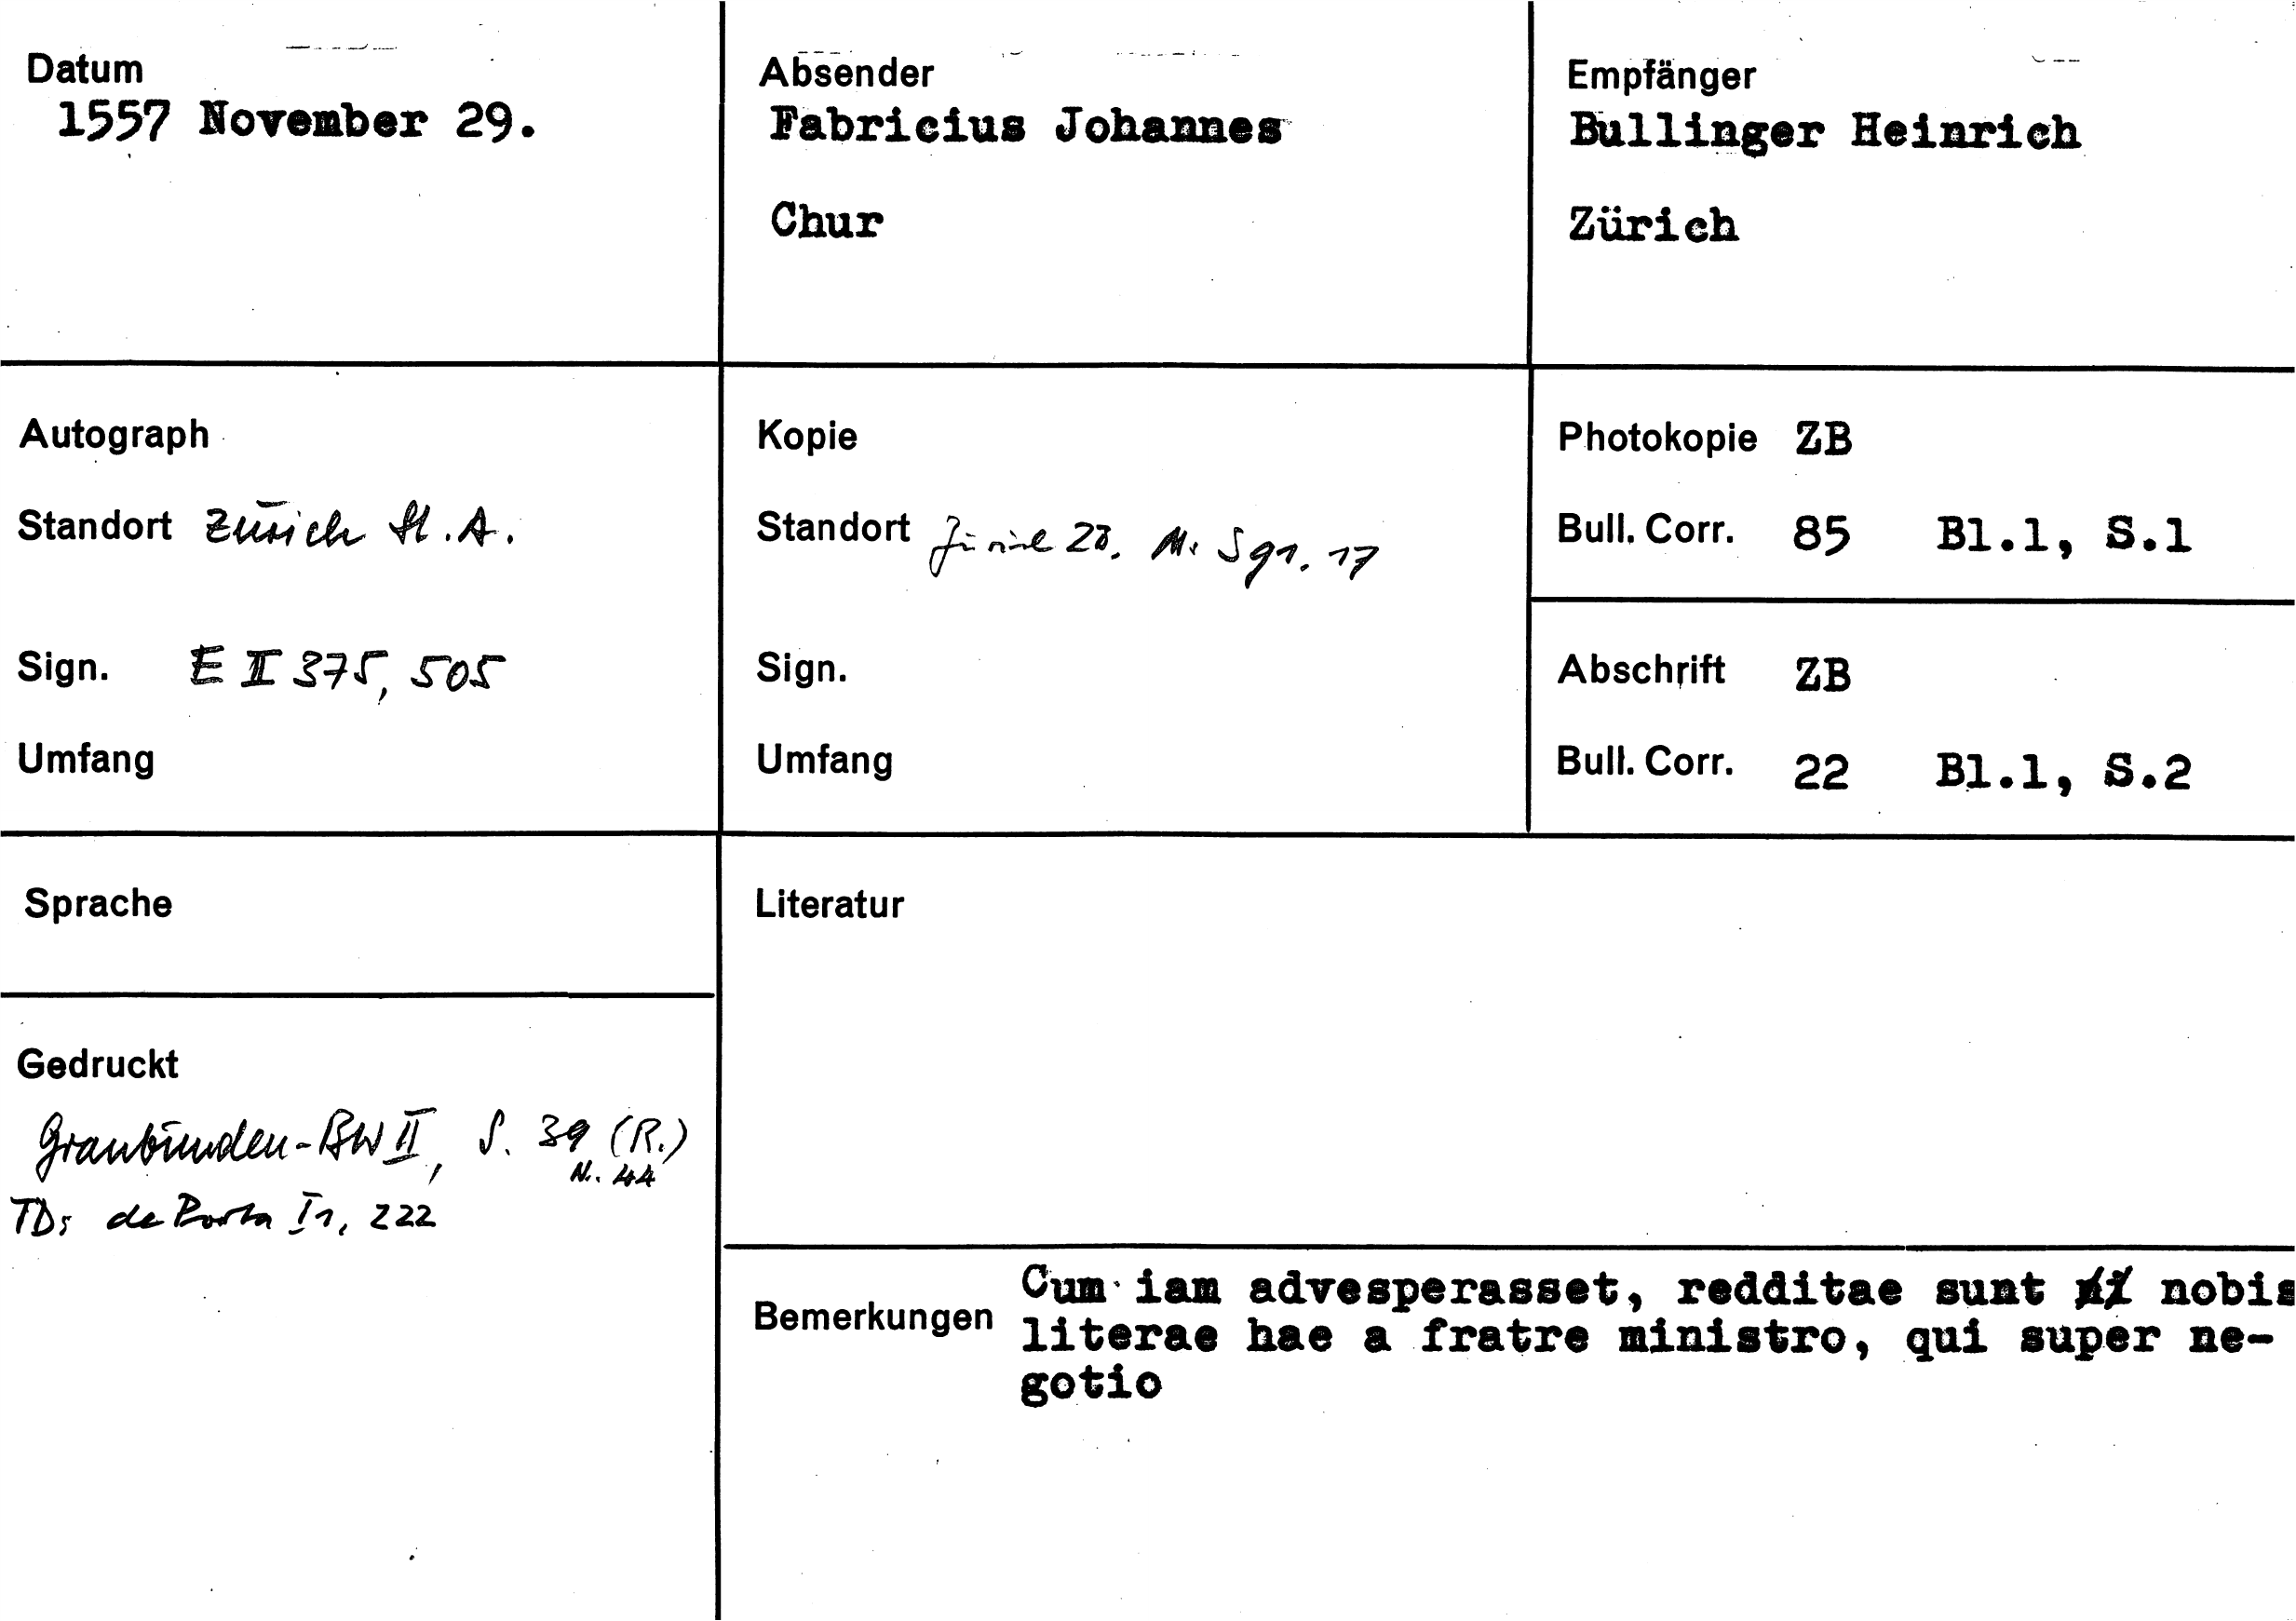 Datum
1557 November 29.
Absender
Fabricius Johannes
Chur
Empfänger
Bullinger Heinrich
Zürich
Autograph
Standort Zürich St.A.
Sign. E II 375, 505
Umfang
Kopie
Standort Zürich ZB. Ms S 91. 17
Sign.
Umfang
Photokopie ZB
Bull. Corr. 85 Bl.1, S.1
Abschrift ZB
Bull. Corr. 22 Bl.1, S.2
Sprache
Gedruckt
Graubünden-BW II, S. 39 (R.)
Nr. 44
TD: de Porta I1, 222
Literatur
Bemerkungen
Cum iam advesperasset, redditae sunt nobis
literae hae a fratre ministro, qui super ne-
gotio